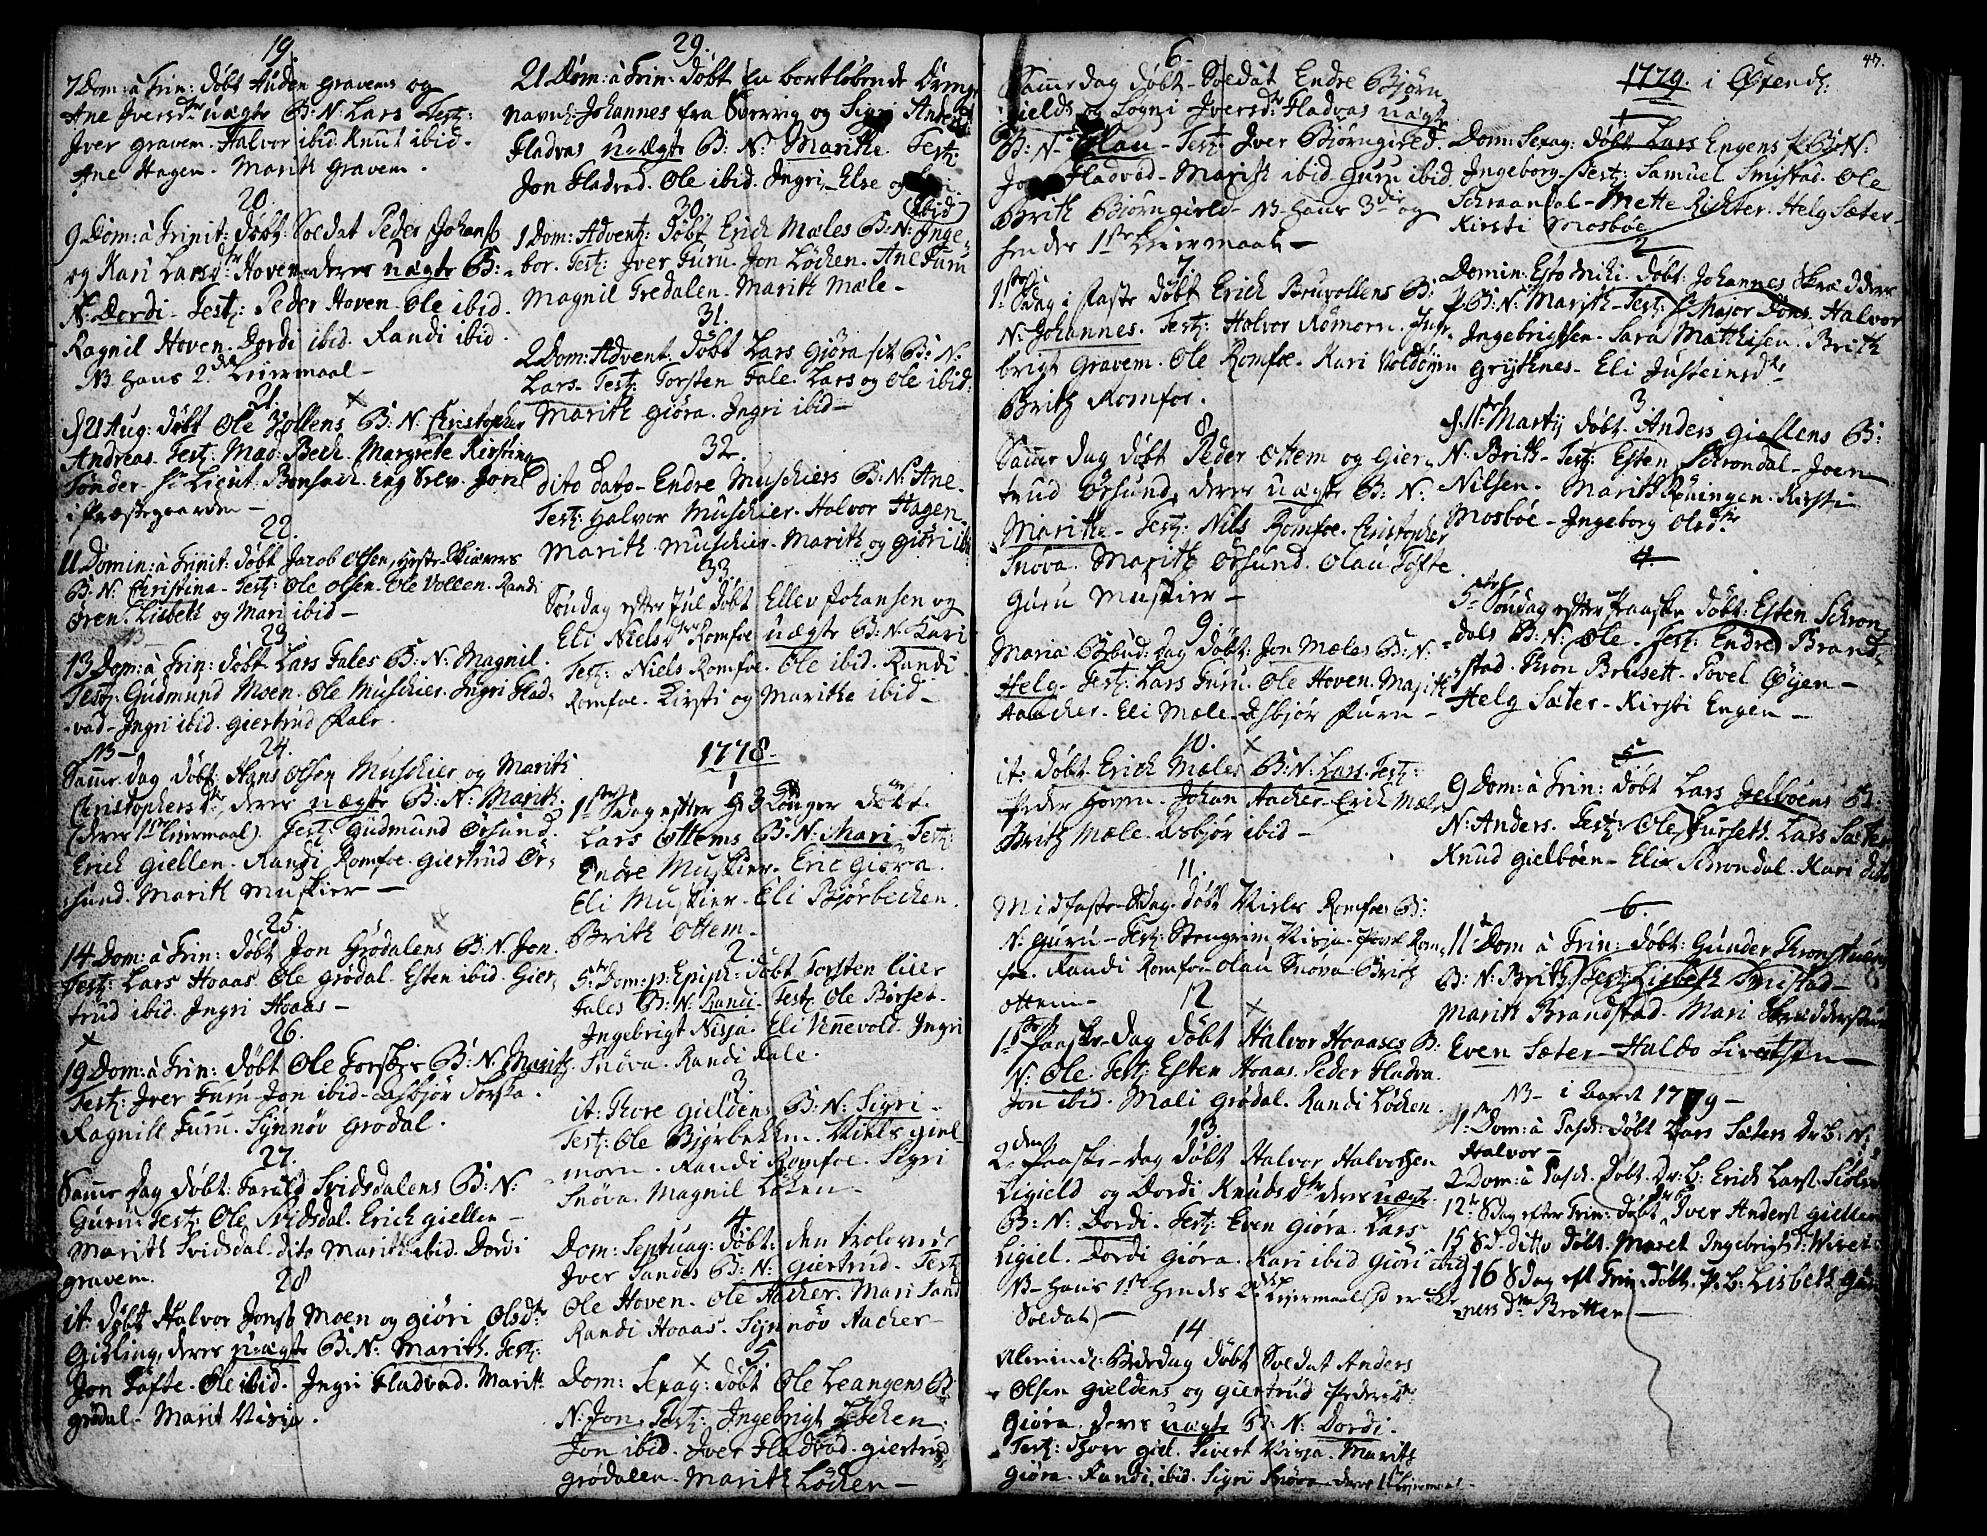 19.
7 Dom: à Trin: døbt Auden Gravems og
Ane Iversdr uægte B: N: Lars Test:
Iver Gravem. Halvor ibid. Knut ibid.
Ane Hagen. Marith Gravem.
20.
9 Dom: à Trinit: døbt Soldat Peder Johans
og Kari Larsdr Hoven deres uægte B:
N: Dordi - Test: Peder Hoven - Ole ibid.
Ragnil Hoven. Dordi ibid. Randi ibid.
NB hans 2det Leiermaal -
21.
d 21 Aug: døbt Ole Vollens B: N: Christopher
Andreas. Test: Mad: Bech. Margrete Kirstine
Tønder
i Præstegaarden -
22.
11 Domin: à Trinit: døbt Jacob Olsen
B: N: Christina - Test: Ole Olsen. Ole Vollen. Randi
Øren. Lisbeth og Mari ibid -
23
13 Dom: à Trin: døbt Lars Fales B: N: Magnil.
Test: Gudmund Moen. Ole Muschier. Ingri Flad-
vad - Ingri ibid. Giertrud Fale.
NB -
24.
Samme dag døbt Hans Olsen Muschier og Marith
Christophersdr deres uægte B: N: Marith.
(deres 1ste Leiermaal) Test: Gudmund Ørsund.
Erich Giellen. Randi Romfoe. Giertrud Ør-
sund. Marith Muskier -
25.
14 Dom: à Trin: døbt Jon Grødalens B: N: Jon.
Test: Lars Hoaas Ole Grødal. Esten ibid. Gier-
trud ibid. Ingri Hoaas -
26.
19 Dom: à Trin: døbt Ole Torskes B: N: Marith
Test: Iver Furu - Jon ibid - Asbjør Torske.
Ragnill Furu. Synnøv Grødal.
27.
Samme dag døbt: Farild Svidsdalens B: N:
Guru. Test: Ole Svidsdal. Erich Giellen -
Marith Svidsdal - dito Marith ibid. Dordi
Gravem.
28
it. døbt Halvor Jons Moen og Giøri Olsdr
Gikling, deres uægte B: N: Marith. Test:
Jon Tofte. Ole ibid. Ingri Fladvad. Marith
Grødal - Marit Visja.
29.
21 Dom: à Trin: døbt en bortløbende Dreng
navnl: Johannes fra og Sigri Anders
Fladvas uægte B: N: Marithe. Test:
Jon Fladvad. Ole ibid. Ingri - Else og
ibid)
30
1 Dom: Advent: døbt Erich Mæles B: N: Inge-
bor. Test: Iver Furu. Jon Løchen. Ane Furu
Magnil Tredalen. Marith Mæle -
31.
2 Dom: Advent. døbt Lars Giøra B: N:
Lars - Test: Torsten Fale. Lars og Ole ibid.
Marith Giøra. Ingri ibid -
32.
dito dato - Endre Muschiers B: N: Ane -
Test: Halvor Muschier. Halvor Hagen.
Marith Muschier - Marith og Giøri ibid
33
Søndag efter Jul døbt Ellev Johansen og
Eli Nielsdr Romfoe uægte B: N: Kari
Test: Niels Romfoe. Ole ibid. Randi
Romfoe. Kirsti og Marithe ibid -
1778.
1
Lars Ottems B: N: Mari - Test:
Endre Muskier - Eric Giøra.
Eli Muskier - Eli Bjørbechen.
Brith Ottem -
2.
5te Dom: p: Epiph: døbt Torsten
Fales B: N: Randi - Test: Ole Børset -
Ingebrigt Nisja. Eli Unnevold. Ingri
Snøva. Randi Fale.
3
it: Thore Gieldens B: N: Sigri -
Test: Ole Bjørbekken. Niels Giel
morn. Randi Romfoe. Sigri
Snøva. Magnil Løken -
4
Dom: Septuag: døbt: den trolovede
Iver Sandes B: N: Giertrud - Test:
Ole Hoven. Ole Aacher. Mari Sande
Randi Hoaas. Synnøv Aacher -
5
Dom: Sexag: døbt Ole Leangens B:
N: Jon. Test: Ingebrigt Løchen:
Jon ibid. Iver Fladvad. Giertrud
Grødalen. Marith Løchen -
6.
Samme dag døbt - Soldat Endre Bjørn
gields og Sogni Iversdr Fladvas uægte
B: N: Olau - Test: Iver Bjørngield.
Jon Fladvad - Marith ibid. Guru ibid.
Brith Bjørngield - NB hans 3die og
hendes 1ste Leiermaal -
7
1ste Sdag i Faste døbt Erich Bruvollens B:
N: Johannes. Test: Halvor Romorn. Inge-
brigt Gravem. Ole Romfoe. Kari Voldøyen
Brith Romfoe.
8
Samme dag døbt Peder Ottem og Gier-
trud Ørsund, deres uægte B: N:
Marithe - Test: Nils Romfoe. Christopher
Snøva. Marith Ørsund. Olau Tofte
Guru Muskier -
9.
Maria Bebud: dag døbt: Jon Mæles B: N:
Helg. Test: Lars Furu. Ole Hoven. Marith
Aacher - Eli Mæle - Asbjør Furu -
10.
it: døbt Erich Mæles B: N: Lars. Test:
Peder Hoven. Johan Aacher - Erich Mæle
Brith Mæle. Asbjør ibid -
11.
Midfaste Sdag døbt Niels Romfoes B:
N: Guru - Test: Stengrim Visja - Povel Rom-
foe. Randi Romfoe. Olau Snøva. Brith
Ottem -
12
1ste Paaske-dag døbt Halvor Hoaases B:
N: Ole. Test: Esten Hoaas. Peder Fladva.
Jon ibid. Mali Grødal. Randi Løchen.
13.
2den Paaske-dag døbt Halvor Halvorsen
Ligield og Dordi Knudsdr deres uægte
B: N: Dordi. Test: Even Giøra. Lars
Ligiel. Dordi Giøra. Kari ibid Giøri ibid
NB hans 1ste hendes 2det Leiermaal
Soldat) -
14
Alminde: Bededag døbt Soldat Anders
Olsen Gieldens og Giertrud Pedersdr
Giøra. deres uægte B: N: Dordi.
Test: Thore Giel. Sivert Visja. Marith
Giøra. Randi ibid. Sigri Snøva. deres 1ste Leiermaal -
47.
1779. i Øxend:
1
Dom: Sexag: døbt Lars Engens B: N:
Ingeborg - Test: Samuel Smistad. Ole
Schrøndal - Mette Richter. Helg Sæter -
Kirsti Mosbøe
2
Domin: Esto Mihi. døbt: Johannes Skrædders
B: N: Marith - Test: Major Dons. Halvor
Ingebrigtsen - Sara Matthisen. Brith
Grytknes - Eli Justeinsdr
3
d. 11te Martij døbt. Anders Giellens B:
N: Brith - Test: Esten Schrøndal - Joen
Nilsen. Marith Røningen. Kirsti
Mosbøe - Ingeborg Olsdr
4
5te Søndag efter Paaske døbt: Esten Schrøn-
dals B: N: Ole - Test: Endre Brand-
stad. Thron Brusett. Povel Øyen -
Helg Sæter - Kirsti Engen -
5
9 Dom: à Trin: døbt Lars Gielbøens B:
N: Anders. Test: Ole Furseth. Lars Sæter
Knud Gielbøen - Elix Schrøndal. Kari dito
6.
11 Dom à Trin: døbt: Gunder Thronstuens
B: N: Brith. Test: Lisbeth Smistad -
Marith Brandstad. Mari Skredderstuen
Even Sæter - Haldo Sivertsen -
NB - i Aaret 1779 -
1. Dom: à Pasch: døbt Lars Sæters Dr: B: N:
Halvor -
2 Dom: à Pasch. døbt. Dr. B: Erich Lars.
12te Sdag efter Trin: døbt Iver Anders Giellen
15 Sd. ditto døbt. Maret Ingebrigtsd:
16 Sdag eft Trin: døbt. P: B: Lisbeth Gun
ners dtr Bratten -